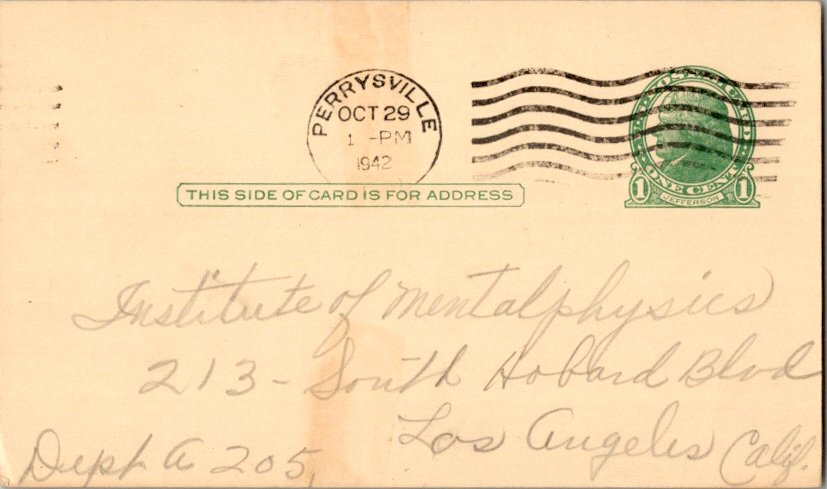 PERRYSVILLE
OCT 29
1 - PM
1942
ONE CENT
1 JEFFERSON 1
THIS SIDE OF CARD IS FOR ADDRESS
Institute of Mentalphysics
213 - South Hobard Blvd
Los Angeles Calif.
Dept. A 205,